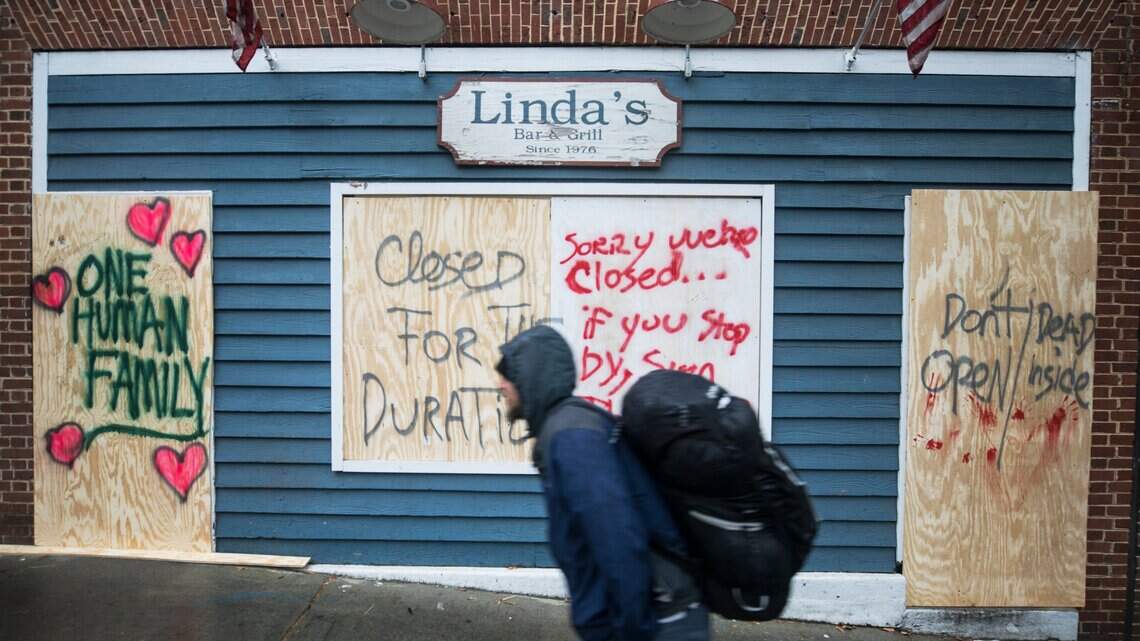 Linda's
Bar & Grill
Since 1976
ONE
HUMAN
FAMILY
Closed
FOR THE
DURATIO
Sorry
Closed...
if you stop
by,
Don't Dead
OPEN Inside